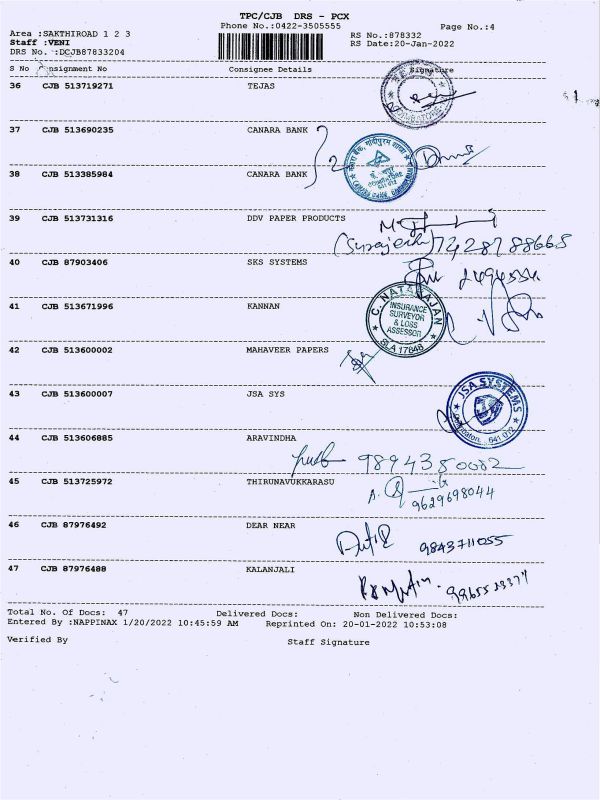 TPC/CJB DRS - PCX
Phone No.:0422-3505555
Page No.:4
Area :SAKTHIROAD 1 2 3
RS No.:878332
Staff :VENI
RS Date:20-Jan-2022
DRS No. :DCJB87833204
S No Consignment No Consignee Details Signature
36 CJB 513719271 TEJAS
COIMBATORE
37 CJB 513690235 CANARA BANK
2
38 CJB 513385984 CANARA BANK
39 CJB 513731316 DDV PAPER PRODUCTS
40 CJB 87903406 SKS SYSTEMS
41 CJB 513671996 KANNAN
C. NATARAJAN
INSURANCE
SURVEYOR
& LOSS
ASSESSOR
SLA 17848
42 CJB 513600002 MAHAVEER PAPERS
43 CJB 513600007 JSA SYS
JSA SYSTEMS
641 012
44 CJB 513606885 ARAVINDHA
9894350082
45 CJB 513725972 THIRUNAVUKKARASU
9629698044
46 CJB 87976492 DEAR NEAR
9843711055
47 CJB 87976488 KALANJALI
Total No. Of Docs: 47 Delivered Docs: Non Delivered Docs:
Entered By :NAPPINAX 1/20/2022 10:45:59 AM Reprinted On: 20-01-2022 10:53:08
Verified By Staff Signature